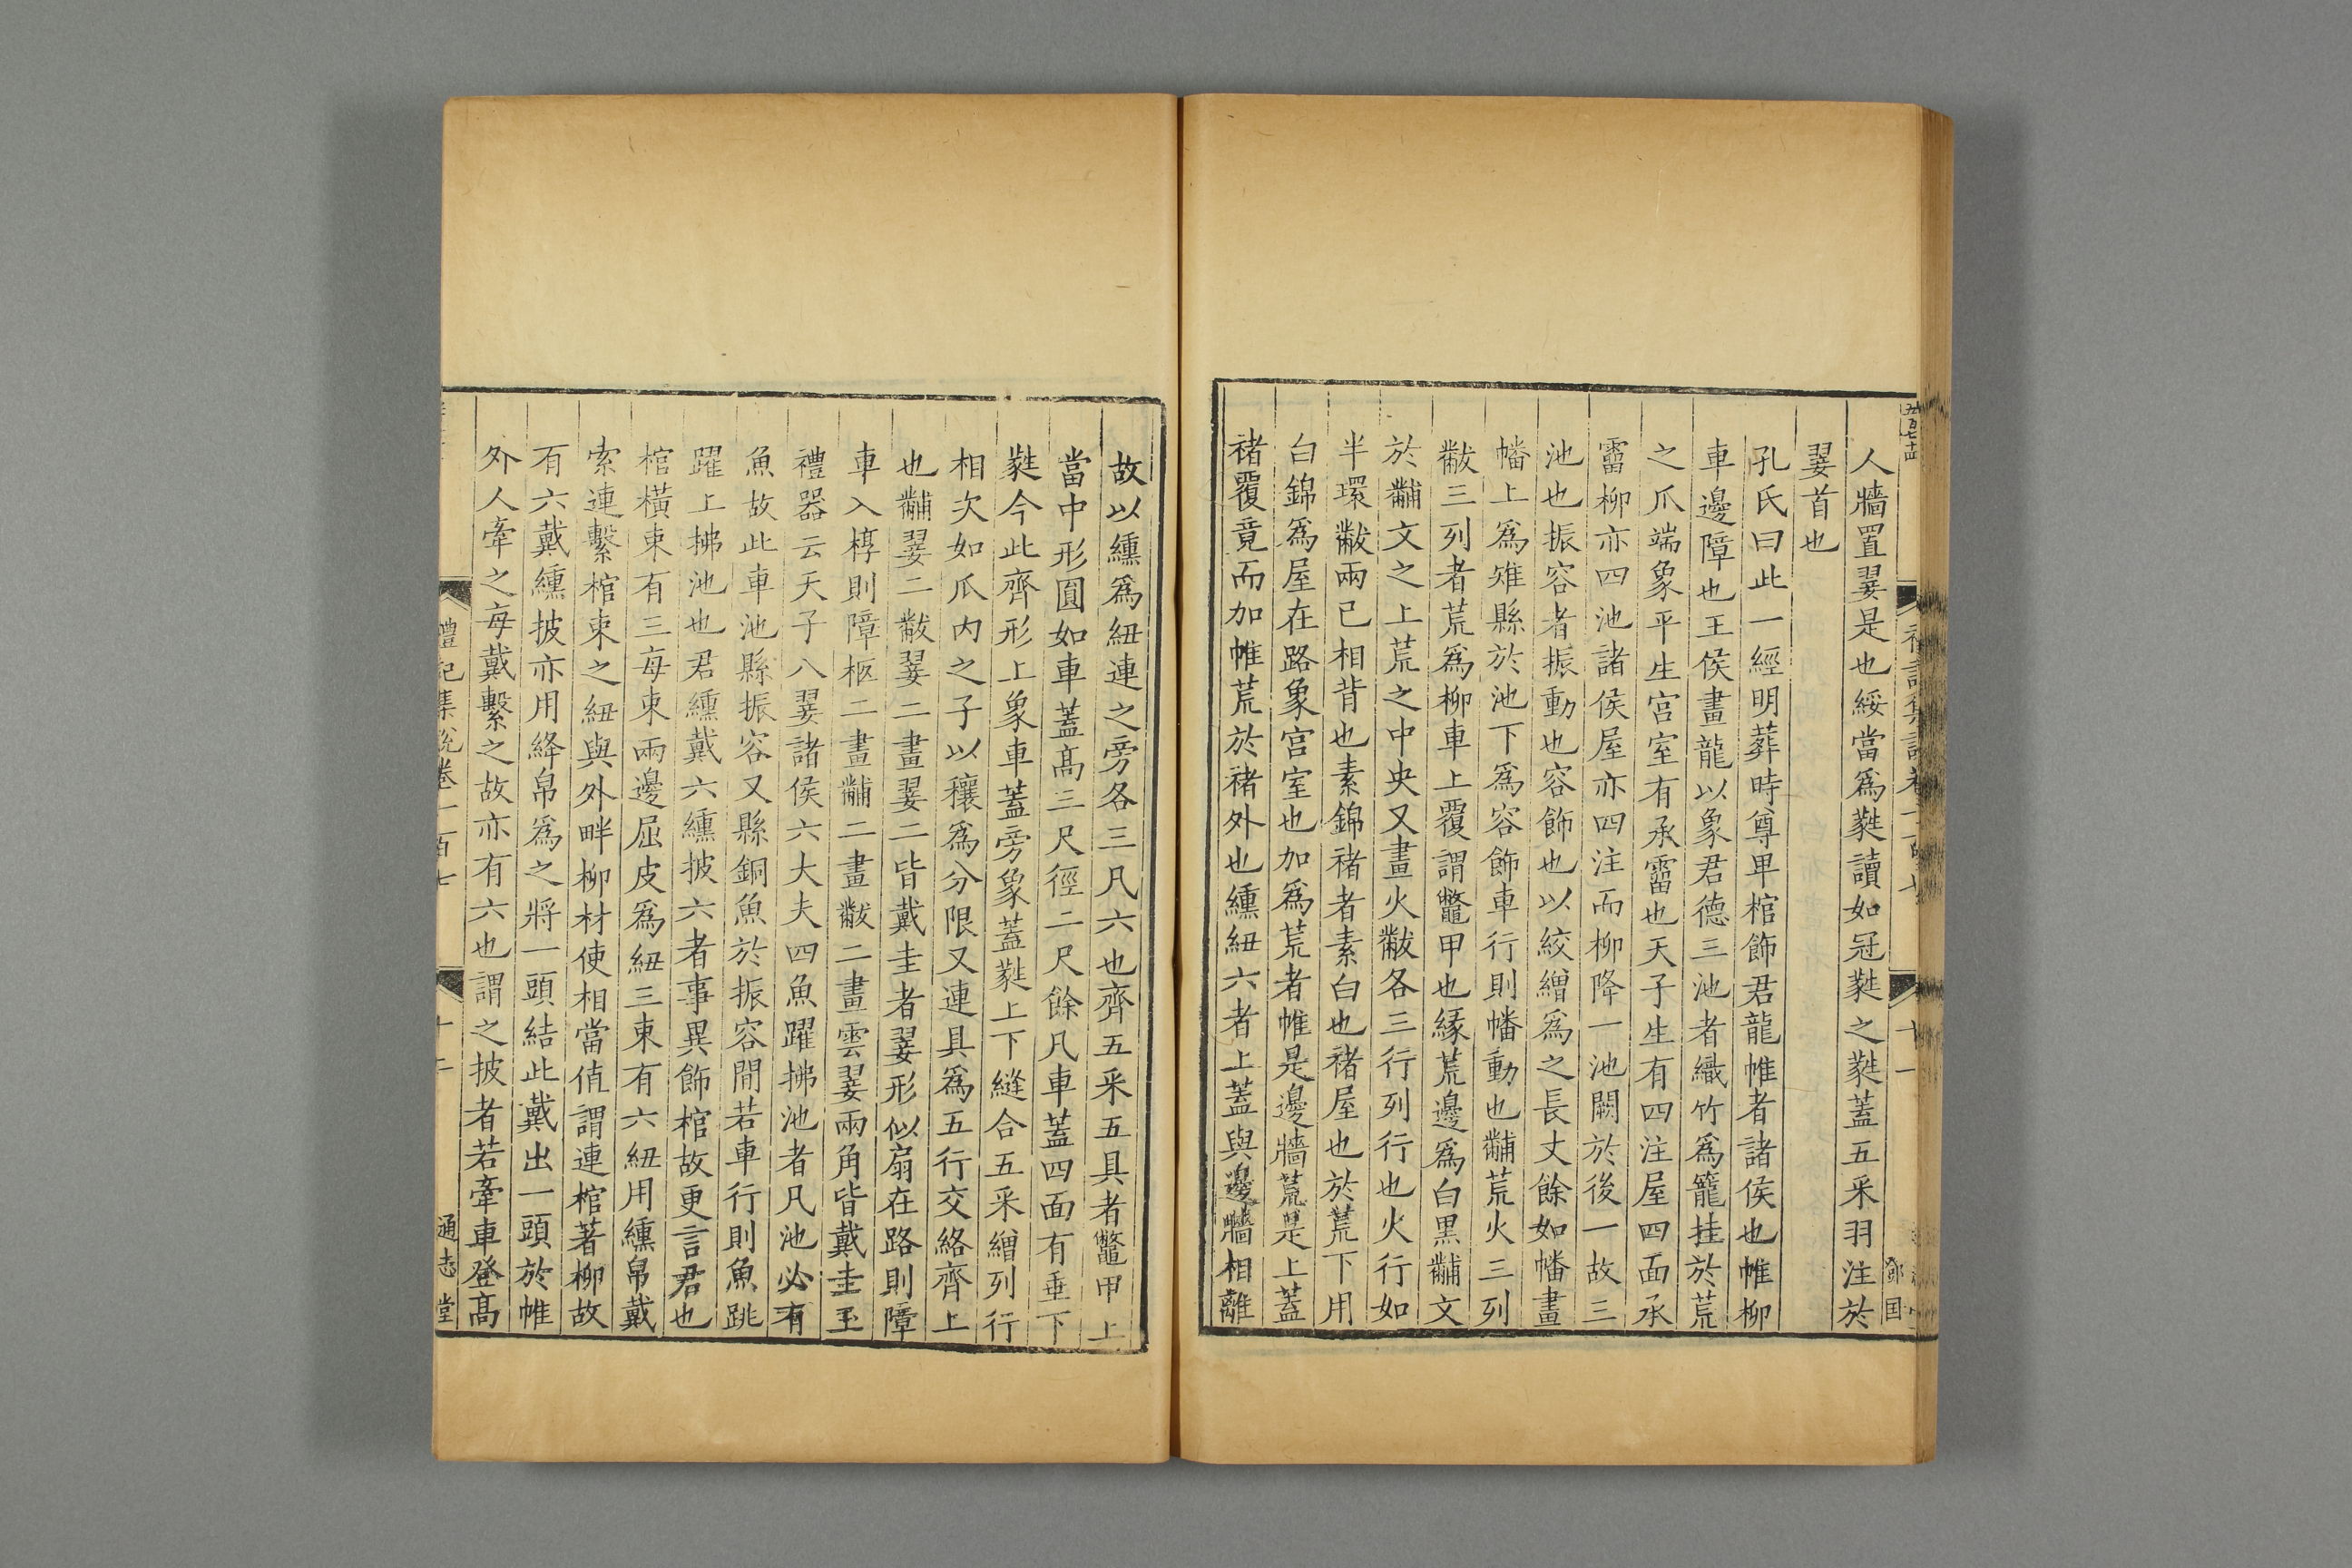 人牆置翣是也綏當爲蕤讀如冠蕤之蕤蓋五采羽注於
翣首也
孔氏曰此一經明葬時尊卑棺飾君龍帷者諸侯也帷柳
車邊障也王侯畫龍以象君德三池者織竹爲籠挂於荒
之爪端象平生宫室有承霤也天子生有四注屋四面承
霤柳亦四池諸侯屋亦四注而柳降一池闕於後一故三
池也振容者振動也容飾也以絞繒爲之長丈餘如幡畫
幡上爲雉縣於池下爲容飾車行則幡動也黼荒火三列
黻三列者荒爲柳車上覆謂鼈甲也緣荒邊爲白黑黼文
於黼文之上荒之中央又畫火黻各三行列行也火行如
半環黻兩已相背也素錦褚者素白也褚屋也於荒下用
白錦爲屋在路象宫室也加爲荒者帷是邊牆荒是上蓋
褚覆竟而加帷荒於褚外也纁紐六者上蓋與邊牆相離
故以纁爲紐連之旁各三凡六也齊五采五具者鼈甲上
當中形圓如車蓋高三尺徑二尺餘凡車蓋四面有垂下
蕤今此齊形上象車蓋旁象蓋蕤上下縫合五采繒列行
相次如瓜内之子以穰爲分限又連具爲五行交絡齊上
也黼翣二黻翣二畫翣二皆戴圭者翣形似扇在路則障
車入椁則障柩二畫黼二畫黻二畫雲翣兩角皆戴圭玉
禮器云天子八翣諸侯六大夫四魚躍拂池者凡池必有
魚故此車池縣振容又縣銅魚於振容間若車行則魚跳
躍上拂池也君纁戴六纁披六者事異飾棺故更言君也
棺橫束有三每束兩邊屈皮爲紐三束有六紐用纁帛戴
索連繫棺束之紐與外畔柳材使相當值謂連棺著柳故
有六戴纁披亦用絳帛爲之將一頭結此戴出一頭於帷
外人牽之每戴繫之故亦有六也謂之披者若牽車登高
禮記集說卷一百七
十二
通志堂